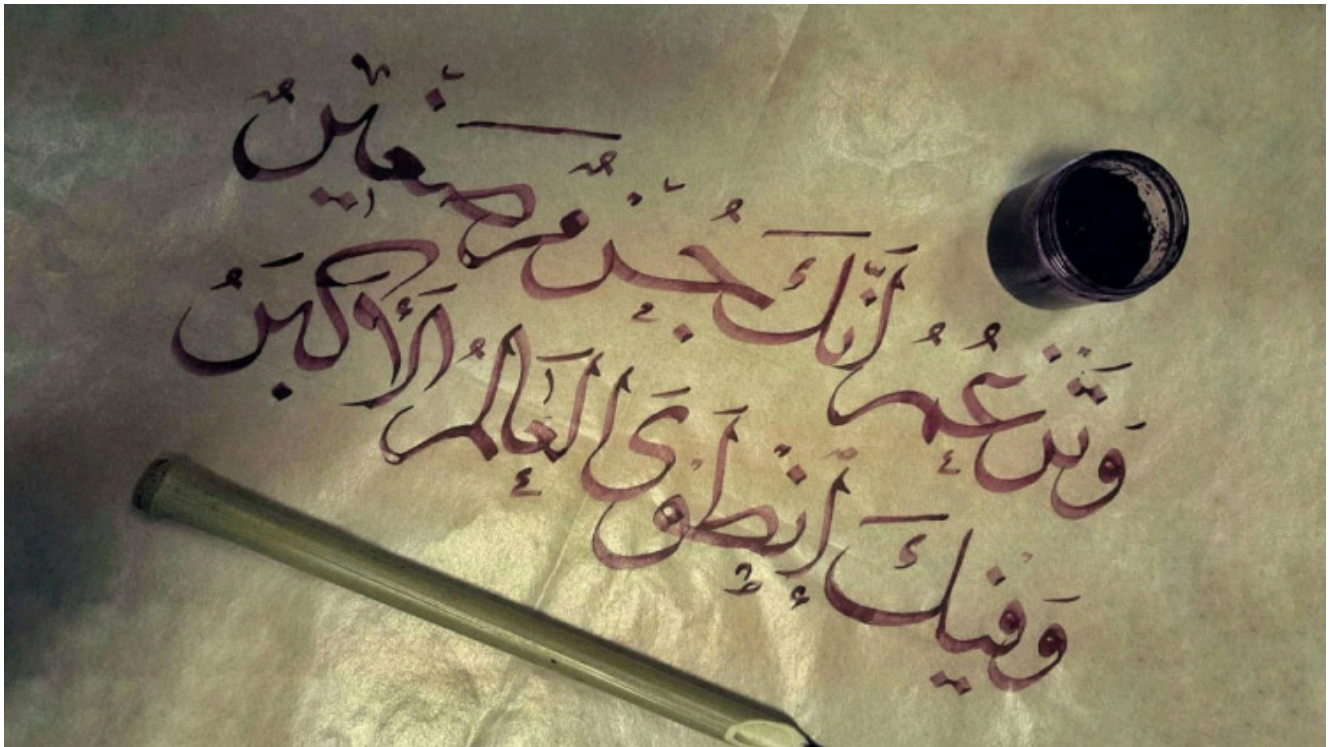 وَتَزْعُمُ أَنَّكَ جُرْمٌ صَغِيرٌ
وَفِيكَ إِنْطَوَى العَالَمُ الأَكْبَرُ